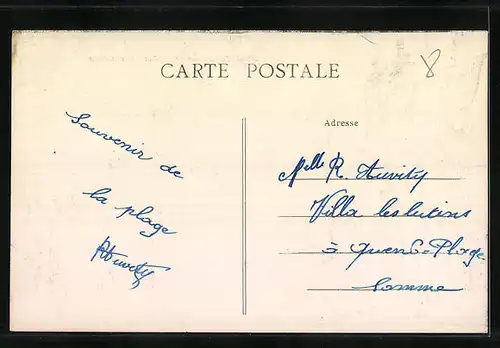 CARTE POSTALE
8
Souvenir de
la plage
Adresse
Melle R. Huvity
Villa les lutins
à Quend-Plage
Somme